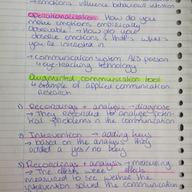 → emotions influence behavioural intention
operationalization: how do you
make emotions empirically
observable → how do your
elicite emotions & that's what's
you're interested in
→ communication system ALS person
↳ eye-tracking technology
augmented communication tool
↳ example of applied communication
research
1) Recordings + analysis → diagnose
→ They recorded to analyse
problems in the communication
2) Intervention → adding keys
→ based on the analysis they
added a yes/no key
3) Recordings + analysis → measuring
→ The effects were
measured to see whether the
intervention solved the communication